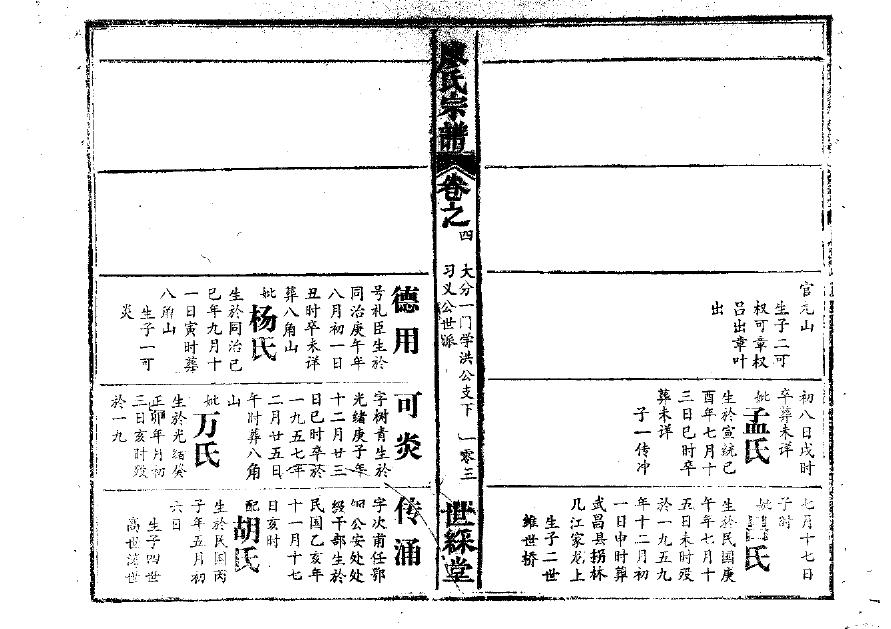 官元山
生子二可
权可章权
吕出章叶
出
初八日戌时
卒葬未详
妣孟氏
生於宣統己
酉年七月十
三日巳时卒
葬未详
子一传冲
七月十七日
子时
妣
氏
生於民国庚
午年七月十
五日未时殁
於一九五九
年十二月初
一日申时葬
武昌县拐林
几江家龙上
生子二世
维世桥
廖氏宗譜
卷之四
大分一门学洪公支下 一零三
习义公世派
世綵堂
德用
号礼臣生於
同治庚午年
八月初一日
丑时卒未详
葬八角山
妣杨氏
生於同治己
巳年九月十
一日寅时葬
八角山
生子一可
炎
可炎
字树青生於
光绪庚子年
十二月廿三
日巳时卒於
一九五七年
二月廿五日
午时葬八角
山
妣万氏
生於光绪癸
卯年月初
三日亥时殁
於一九
传涌
字次甫任鄂
公安处处
级干部生於
民国乙亥年
十一月十七
日亥时
配胡氏
生於民国丙
子年五月初
六日
生子四世
高世涛世